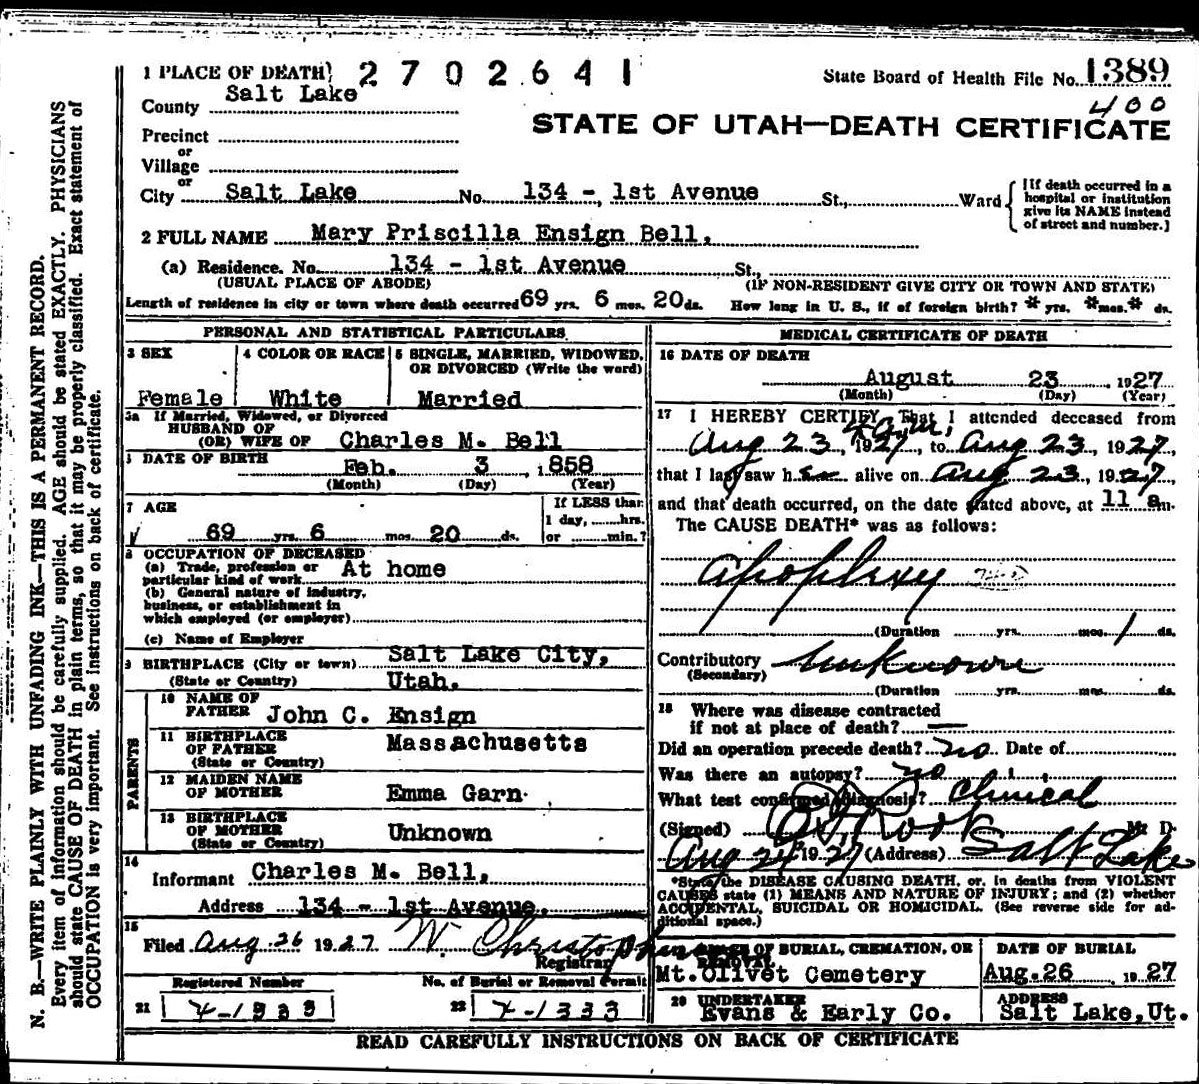 1 PLACE OF DEATH} 2702641 State Board of Health File No. 1389
County Salt Lake 400
STATE OF UTAH—DEATH CERTIFICATE
Precinct
or
Village
or
City Salt Lake No. 134 - 1st Avenue St., Ward { [If death occurred in a hospital or institution give its NAME instead of street and number.]
2 FULL NAME Mary Priscilla Ensign Bell,
(a) Residence. No. 134 - 1st Avenue St.,
(USUAL PLACE OF ABODE) (IF NON-RESIDENT GIVE CITY OR TOWN AND STATE)
Length of residence in city or town where death occurred 69 yrs. 6 mos. 20 ds. How long in U. S., if of foreign birth? * yrs. * mos. * ds.
PERSONAL AND STATISTICAL PARTICULARS
3 SEX 4 COLOR OR RACE 5 SINGLE, MARRIED, WIDOWED,
OR DIVORCED (Write the word)
Female White Married
5a If Married, Widowed, or Divorced
HUSBAND OF
(OR) WIFE OF Charles M. Bell
DATE OF BIRTH Feb. 3 , 1858
(Month) (Day) (Year)
7 AGE If LESS than
1 day, ......hrs.
69 yrs. 6 mos. 20 ds. or ......min.?
8 OCCUPATION OF DECEASED
(a) Trade, profession or
particular kind of work At home
(b) General nature of industry,
business, or establishment in
which employed (or employer)
(c) Name of Employer
9 BIRTHPLACE (City or town) Salt Lake City,
(State or Country) Utah.
PARENTS
10 NAME OF
FATHER John C. Ensign
11 BIRTHPLACE
OF FATHER Massachusetts
(State or Country)
12 MAIDEN NAME
OF MOTHER Emma Garn
13 BIRTHPLACE
OF MOTHER Unknown
(State or Country)
14
Informant Charles M. Bell,
Address 134 - 1st Avenue.
15
Filed Aug. 26 1927 W. Christopherson
Registrar
Registered Number No. of Burial or Removal Permit
21 4-1333 22 4-1333
MEDICAL CERTIFICATE OF DEATH
16 DATE OF DEATH
August 23 , 1927
(Month) (Day) (Year)
17 I HEREBY CERTIFY, That I attended deceased from
Aug 23, 1927, to Aug 23, 1927
that I last saw her alive on Aug 23, 1927
and that death occurred, on the date stated above, at 11 a m.
The CAUSE DEATH* was as follows:
Apoplexy
(Duration yrs. mos. 1 ds.
Contributory Unknown
(Secondary)
(Duration yrs. mos. ds.
18 Where was disease contracted
if not at place of death? —
Did an operation precede death? no Date of
Was there an autopsy? no
What test confirmed diagnosis? Clinical
(Signed) M. D.
Aug 24 1927 (Address) Salt Lake
*State the DISEASE CAUSING DEATH, or, in deaths from VIOLENT
CAUSES state (1) MEANS AND NATURE OF INJURY; and (2) whether
ACCIDENTAL, SUICIDAL OR HOMICIDAL. (See reverse side for ad-
ditional space.)
PLACE OF BURIAL, CREMATION, OR
REMOVAL
Mt. Olivet Cemetery
DATE OF BURIAL
Aug. 26 , 1927
20 UNDERTAKER
Evans & Early Co.
ADDRESS
Salt Lake, Ut.
READ CAREFULLY INSTRUCTIONS ON BACK OF CERTIFICATE
N. B.—WRITE PLAINLY WITH UNFADING INK—THIS IS A PERMANENT RECORD.
Every item of information should be carefully supplied. AGE should be stated EXACTLY. PHYSICIANS
should state CAUSE OF DEATH in plain terms, so that it may be properly classified. Exact statement of
OCCUPATION is very important. See instructions on back of certificate.